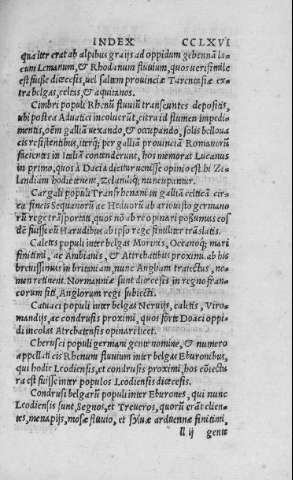 INDEX CCLXVI
qua iter erat ab alpibus graijs ad oppidum gebenna la-
cum Lemanum, & Rhodanum fluuium, quos uerisimile
est fuisse diœcesis, uel saltem prouinciæ Tarentasiæ ex-
tra belgas, celtas, & aquitanos.
Cimbri populi Rhenũ fluuiũ transeuntes depositis,
ubi postea Aduatici incoluerũt, citra id flumen impedi-
mentis, oẽm galliã uexando, & occupando, solis belloua
cis resistentibus, iterq; per galliã prouinciã Romanorũ
facientes in Italiã contenderunt, hos memorat Lucanus
in primo, quos à Dacia dictur
opinio est hi Ze-
landiam hodie tenent, Zelandiq; nuncupantur.
populi Transrhenani in galliã celticã cir-
ca fines Sequanorũ ac Heduorũ ab ariouisto germano
rũ rege trãsportati, quos nõ ab re opinari possumus eos
dẽ fuisse cũ Harudibus ab ipso rege similiter trãslatis.
Caletes populi inter belgas Morinis, Oceanoq; mari
finitimi, ac Ambianis, & Attrebatibus proximi. ab his
breuissimus in britaniam, nunc Angliam traiectus, no-
men retinent. Normanniæ sunt diœcesis in regno fran-
corum siti, Anglorum regi subiecti.
Catuaci populi inter belgas Neruijs, caletis, Viro-
manduis, ac condrusis proximi, quos forte Doaci oppi-
di incolas Atrebatensis opinari licet.
Cherusci populi germani gente nomine, & numero
appellati cis Rhenum fluuium inter belgas Eburonibus,
qui hodie Leodiensis, et condrusis proximi, hos cõiectu
ra est fuisse inter populos Leodiensis diœcesis.
Condrusi belgarũ populi inter Eburones, qui nunc
Leodiensis sunt, Segnos, et Treueros, quorũ erãt clien-
tes, menapijs, mosæ fluuio, et syluæ arduennæ finitimi,
ll ij gente